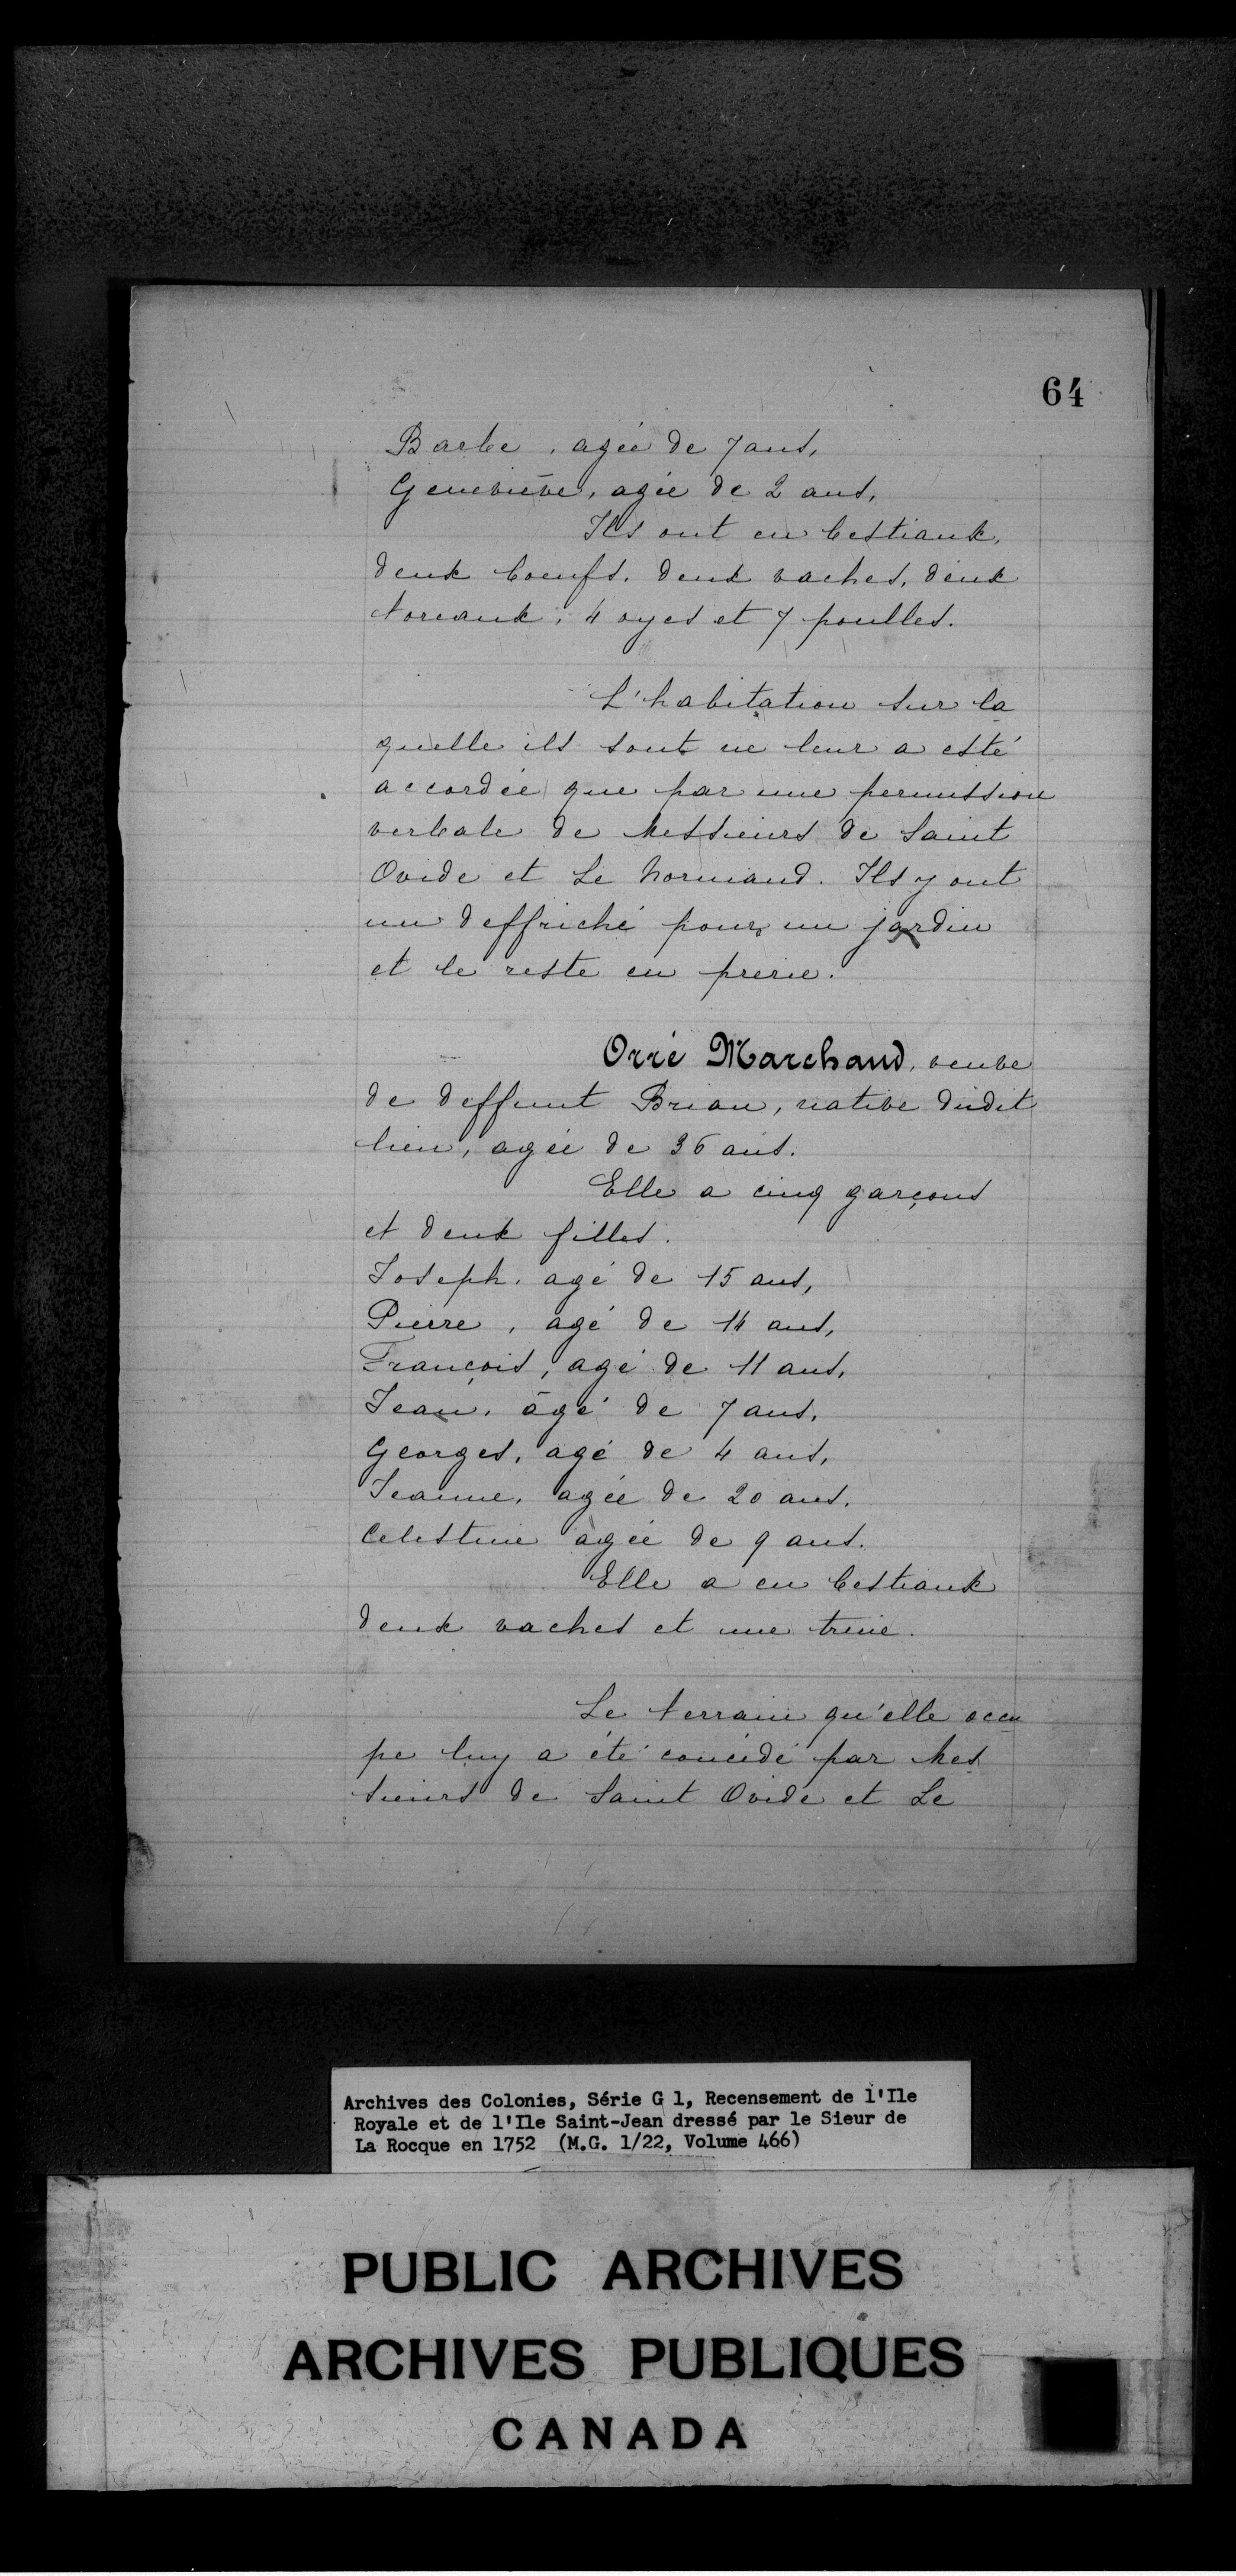 64
Barbe, agée de 7 ans,
Geneviève, agée de 2 ans,
Ils ont en bestiaux,
deux boeufs, deux vaches, deux
toreaux, 4 oyes et 7 poulles.
L'habitation sur la
quelle ils sont ne leur a esté
accordée que par une permission
verbale de Messieurs de Saint
Ovide et Le Normand. Ils y ont
un deffriché pour un jardin
et le reste en prerie.
Orré Marchand, veuve
de deffunt Brian, native dudit
lieu, agée de 36 ans.
Elle a cinq garçons
et deux filles.
Joseph, agé de 15 ans,
Pierre, agé de 14 ans,
François, agé de 11 ans,
Jean, âgé de 7 ans,
Georges, agé de 4 ans,
Jeanne, agée de 20 ans,
Celestine agée de 9 ans.
Elle a en bestiaux
deux vaches et une truie.
Le terrain qu'elle occu
pe luy a été concédé par Mes
sieurs de Saint Ovide et Le
Archives des Colonies, Série G 1, Recensement de l'Ile
Royale et de l'Ile Saint-Jean dressé par le Sieur de
La Rocque en 1752 (M.G. 1/22, Volume 466)
PUBLIC ARCHIVES
ARCHIVES PUBLIQUES
CANADA